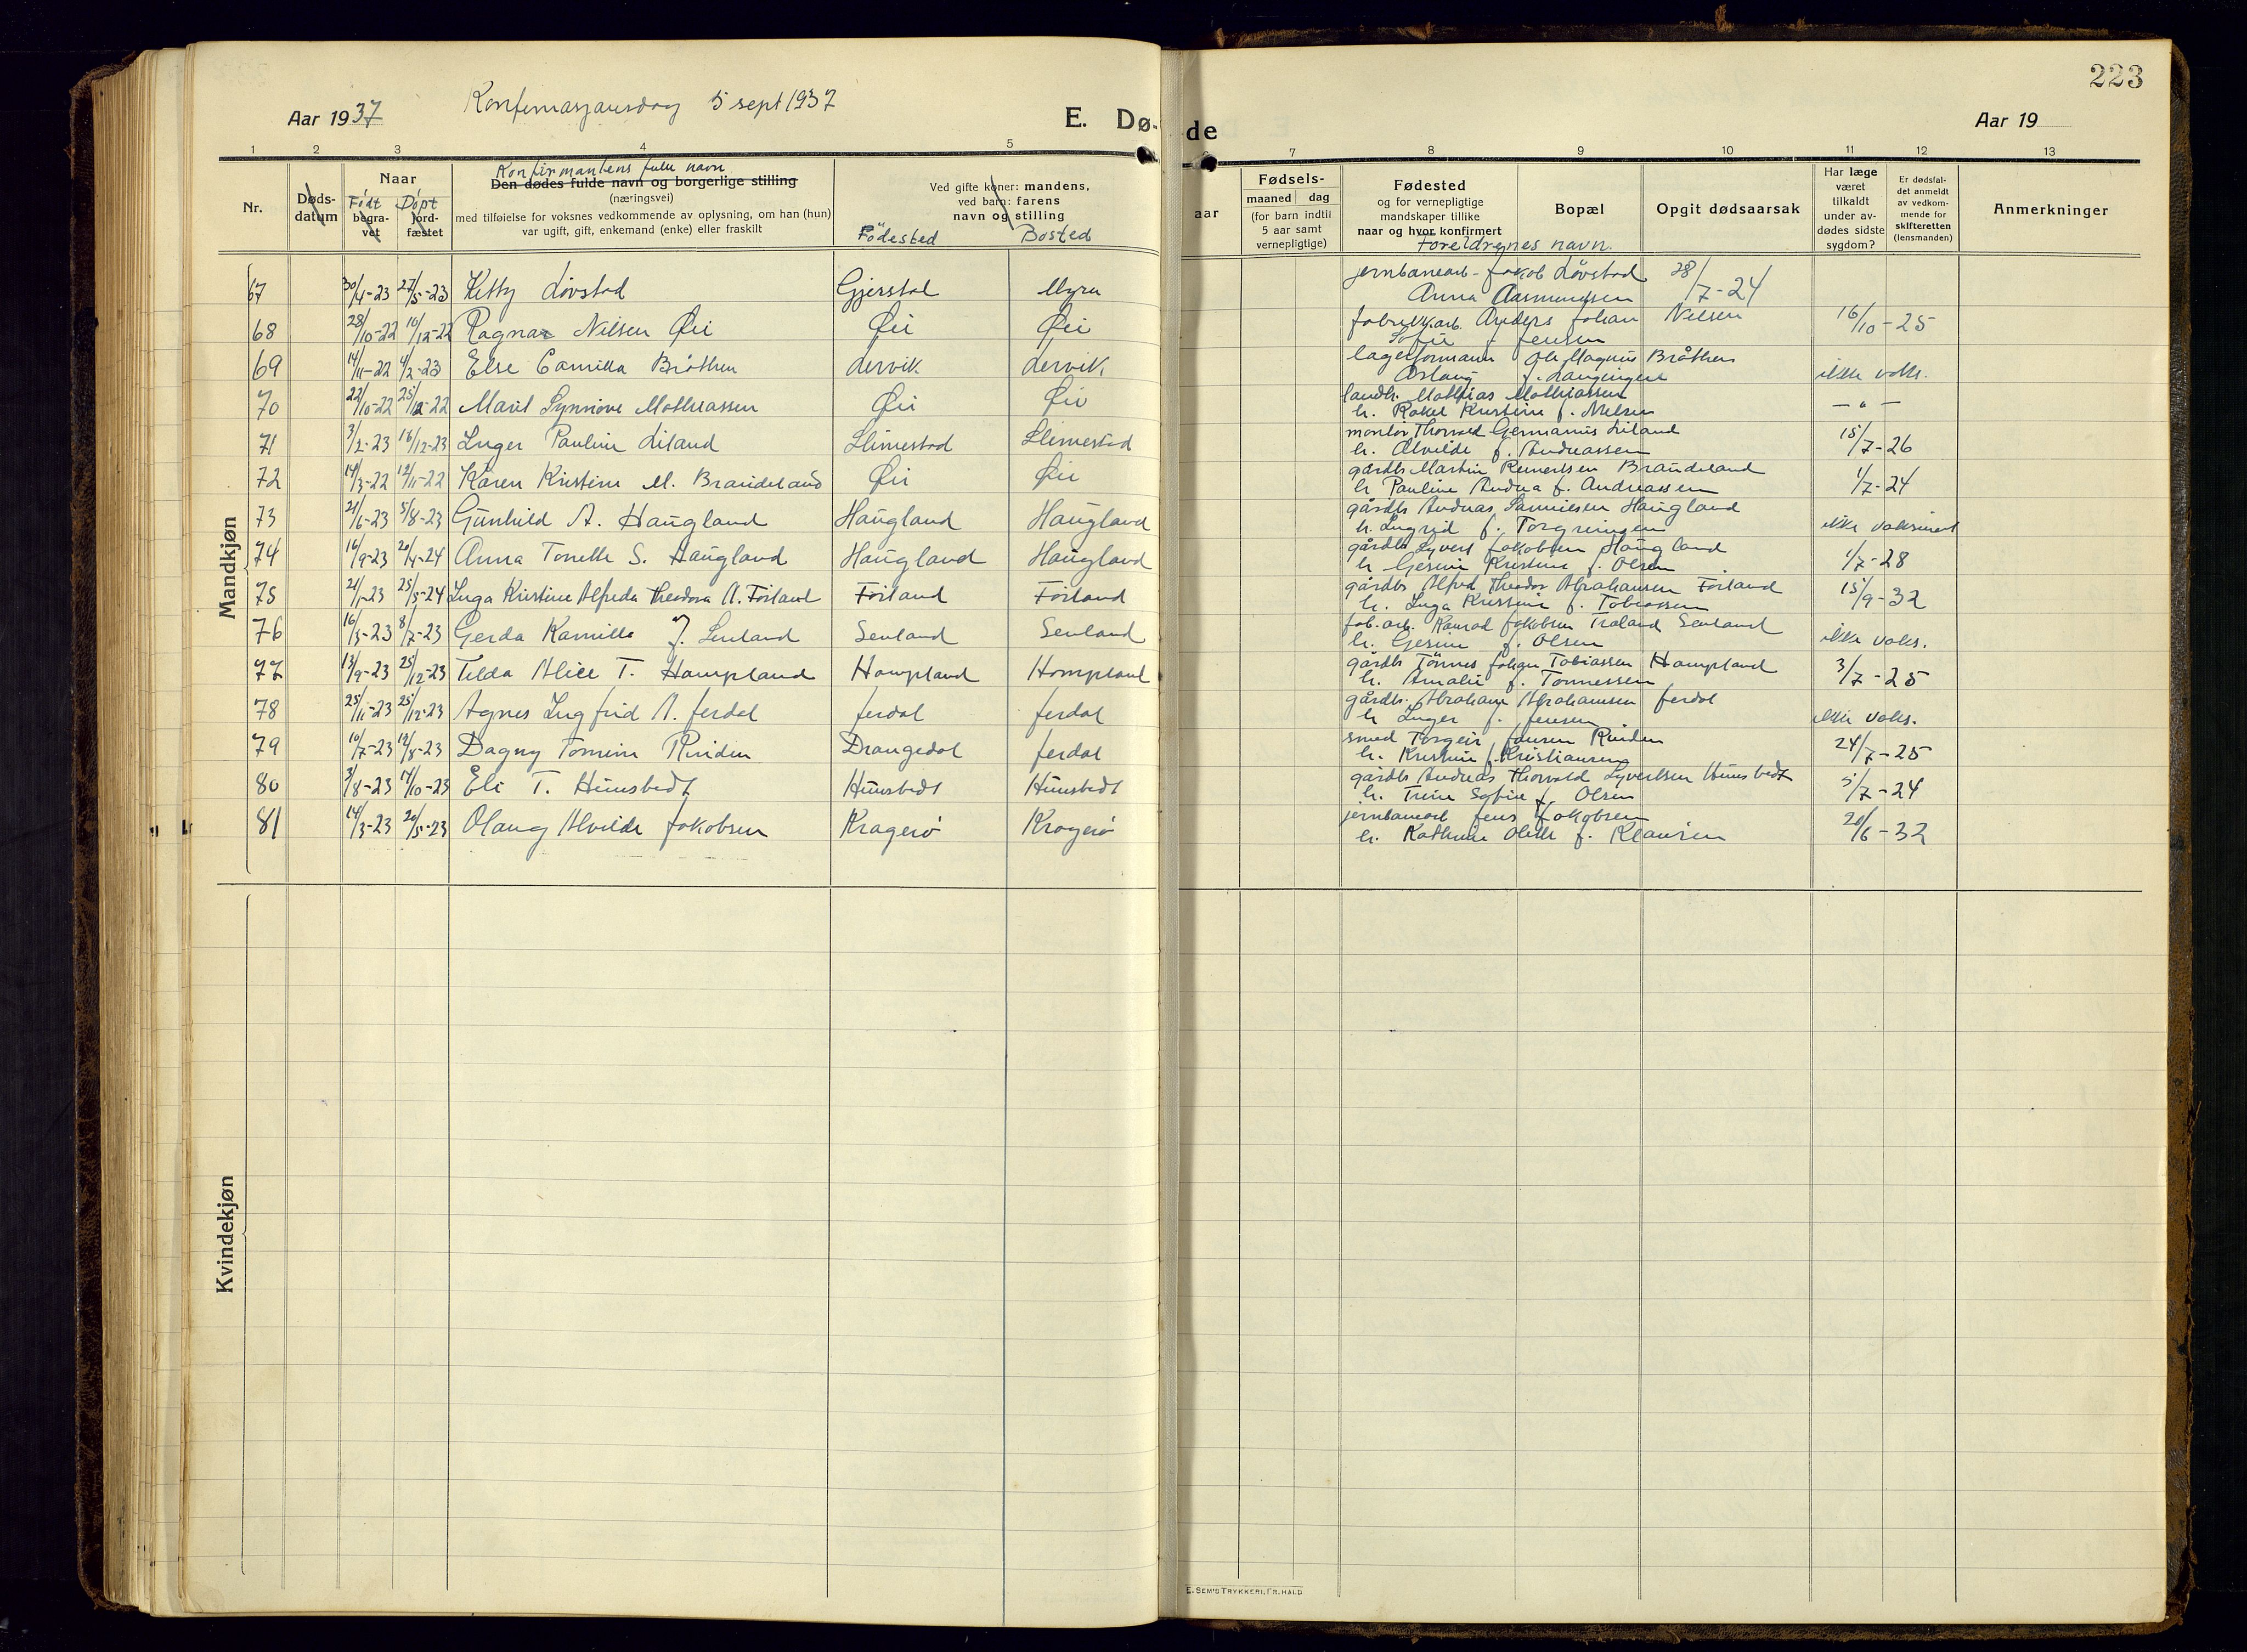 223
Aar 1937 Konfirmasjonsdag 5 sept 1937 E. Dø- de Aar 19
1 2 3 4 5 7 8 9 10 11 12 13
Nr. Døds-datum Naar Født begravet Døpt jordfæstet
Konfirmantens fulle navn
Den dødes fulde navn og borgerlige stilling
(næringsvei)
med tilføielse for voksnes vedkommende av oplysning, om han (hun)
var ugift, gift, enkemand (enke) eller fraskilt
Ved gifte koner: mandens,
ved barn: farens
navn og stilling
Fødested Bosted
aar
Fødsels-
maaned dag
(for barn indtil
5 aar samt
vernepligtige)
Fødested
og for vernepligtige
mandskaper tillike
naar og hvor konfirmert
Foreldrenes navn.
Bopæl
Opgit dødsaarsak
Har læge
været
tilkaldt
under av-
dødes sidste
sygdom?
Er dødsfal-
det anmeldt
av vedkom-
mende for
skifteretten
(lensmanden)
Anmerkninger
Mandkjøn
67 30/4-23 27/5-23 Kitty Løvstad Gjerstad Myra jernbanearb. Jakob Løvstad 28/7-24
Anna Aasmundsen
68 28/10-22 10/12-22 Ragnar Nilsen Øi Øi Øi fabrikkarb. Anders Johan Nilsen 16/10-25
Sofie f. Jensen
69 14/11-22 4/2-23 Else Camilla Bråthen Lervik Lervik lagerformann Ole Magnus Bråthen
Aslaug f. ikke vaks.
70 22/10-22 25/12-22 Marit Synnøve Mathiassen Øi Øi landh. Mathias Mathiassen
h. Rakel Kristine f. Nilsen — " —
71 3/2-23 16/12-23 Inger Pauline Liland Slimestad Slimestad montør Thorvald Germanus Liland 15/7-26
h. Alvilde f. Andreassen
72 14/3-22 12/11-22 Karen Kristine M. Brandeland Øi Øi gårdbr. Martin Reinertsen Brandeland
h. Pauline Andrea f. Andreassen 1/7-24
73 21/6-23 5/8-23 Gunhild A. Haugland Haugland Haugland gårdbr. Andreas Samuelsen Haugland
h. Ingrid f. Torgrimsen ikke vaksinert
74 16/9-23 20/4-24 Anna Tonette S. Haugland Haugland Haugland gårdbr. Syvert Jakobsen Haugland
h. Gesine Kristine f. Olsen 1/7-28
75 21/1-23 25/5-24 Inga Kristine Alfreda Theodora A. Førland Førland Førland gårdbr. Alfred Theodor Abrahamsen Førland 15/9-32
h. Inga Kristine f. Tobiassen
76 16/5-23 8/7-23 Gerda Kamilla J. Senland Senland Senland fab.arb. Konrad Jakobsen Træland Senland
h. Gesine f. Olsen ikke vaks.
77 13/9-23 25/12-23 Tilda Alice T. Hompland Hompland Hompland gårdbr. Tønnes Johan Tobiassen Hompland 3/7-25
h. Amalie f. Tønnessen
78 25/11-23 25/12-23 Agnes Ingfrid A. Jerdal Jerdal Jerdal gårdbr. Abraham Abrahamsen Jerdal
h. Inger f. Jensen ikke vaks.
79 10/7-23 12/8-23 Dagny Tomine Rinden Drangedal Jerdal smed Torgeir Jansen Rinden
h. Kristine f. Kristiansen 24/7-25
80 3/8-23 14/10-23 Eli T. Hunsbedt Hunsbedt Hunsbedt gårdbr. Andreas Thorvald Syvertsen Hunsbedt
h. Trine Sofie f. Olsen 5/7-24
81 14/3-23 20/5-23 Olaug Alvilde Jakobsen Kragerø Kragerø jernbanearb. Jens Jakobsen
h. Kathrine Olette f. Klausen 20/6-32
Kvindekjøn
E. SEM'S TRYKKERI, FR.HALD